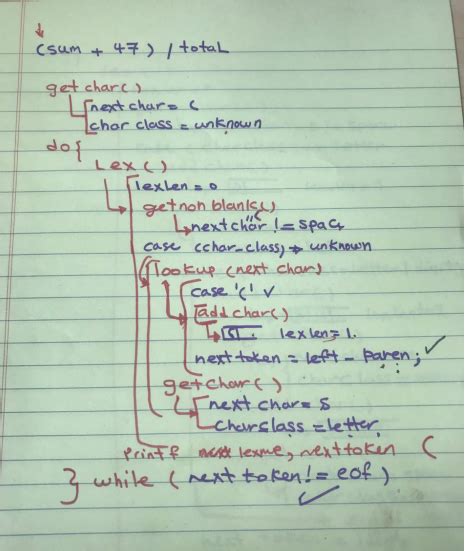 (sum + 47) / total
getchar()
nextchar = (
char class = unknown
do{
Lex()
lexlen = 0
getnonblank()
nextchar != space
case (char_class) → unknown
lookup (next char)
case '(' ✓
addchar()
( lexlen = 1.
next token = left - paren; ✓
getchar()
next char = s
charclass = letter
printf next lexme, nexttoken (
} while (next token != eof)